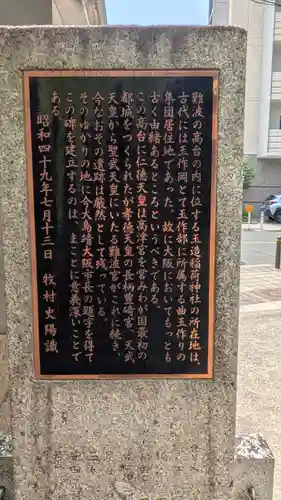 難波の高台の内に位する玉造稲荷神社の所在地は、
古代には玉作岡とて玉作部に所属する曲玉作りの
集団居住地であった、故に永く大阪に於てもっとも
古く由緒あるところとしられているのである。
この高台に仁徳天皇は高津宮を営みわが国最初の
都城をつくられたが孝徳天皇の長柄豊碕宮、天武
天皇から聖武天皇にいたる難波宮がこれに続き、
今なおその遺跡は厳然として残っている。
そのゆかりの地に今大島靖大阪市長の題字を得て
この碑を建立するのは、まことに意義深いことで
ある。
昭和四十九年七月十三日 牧村史陽識